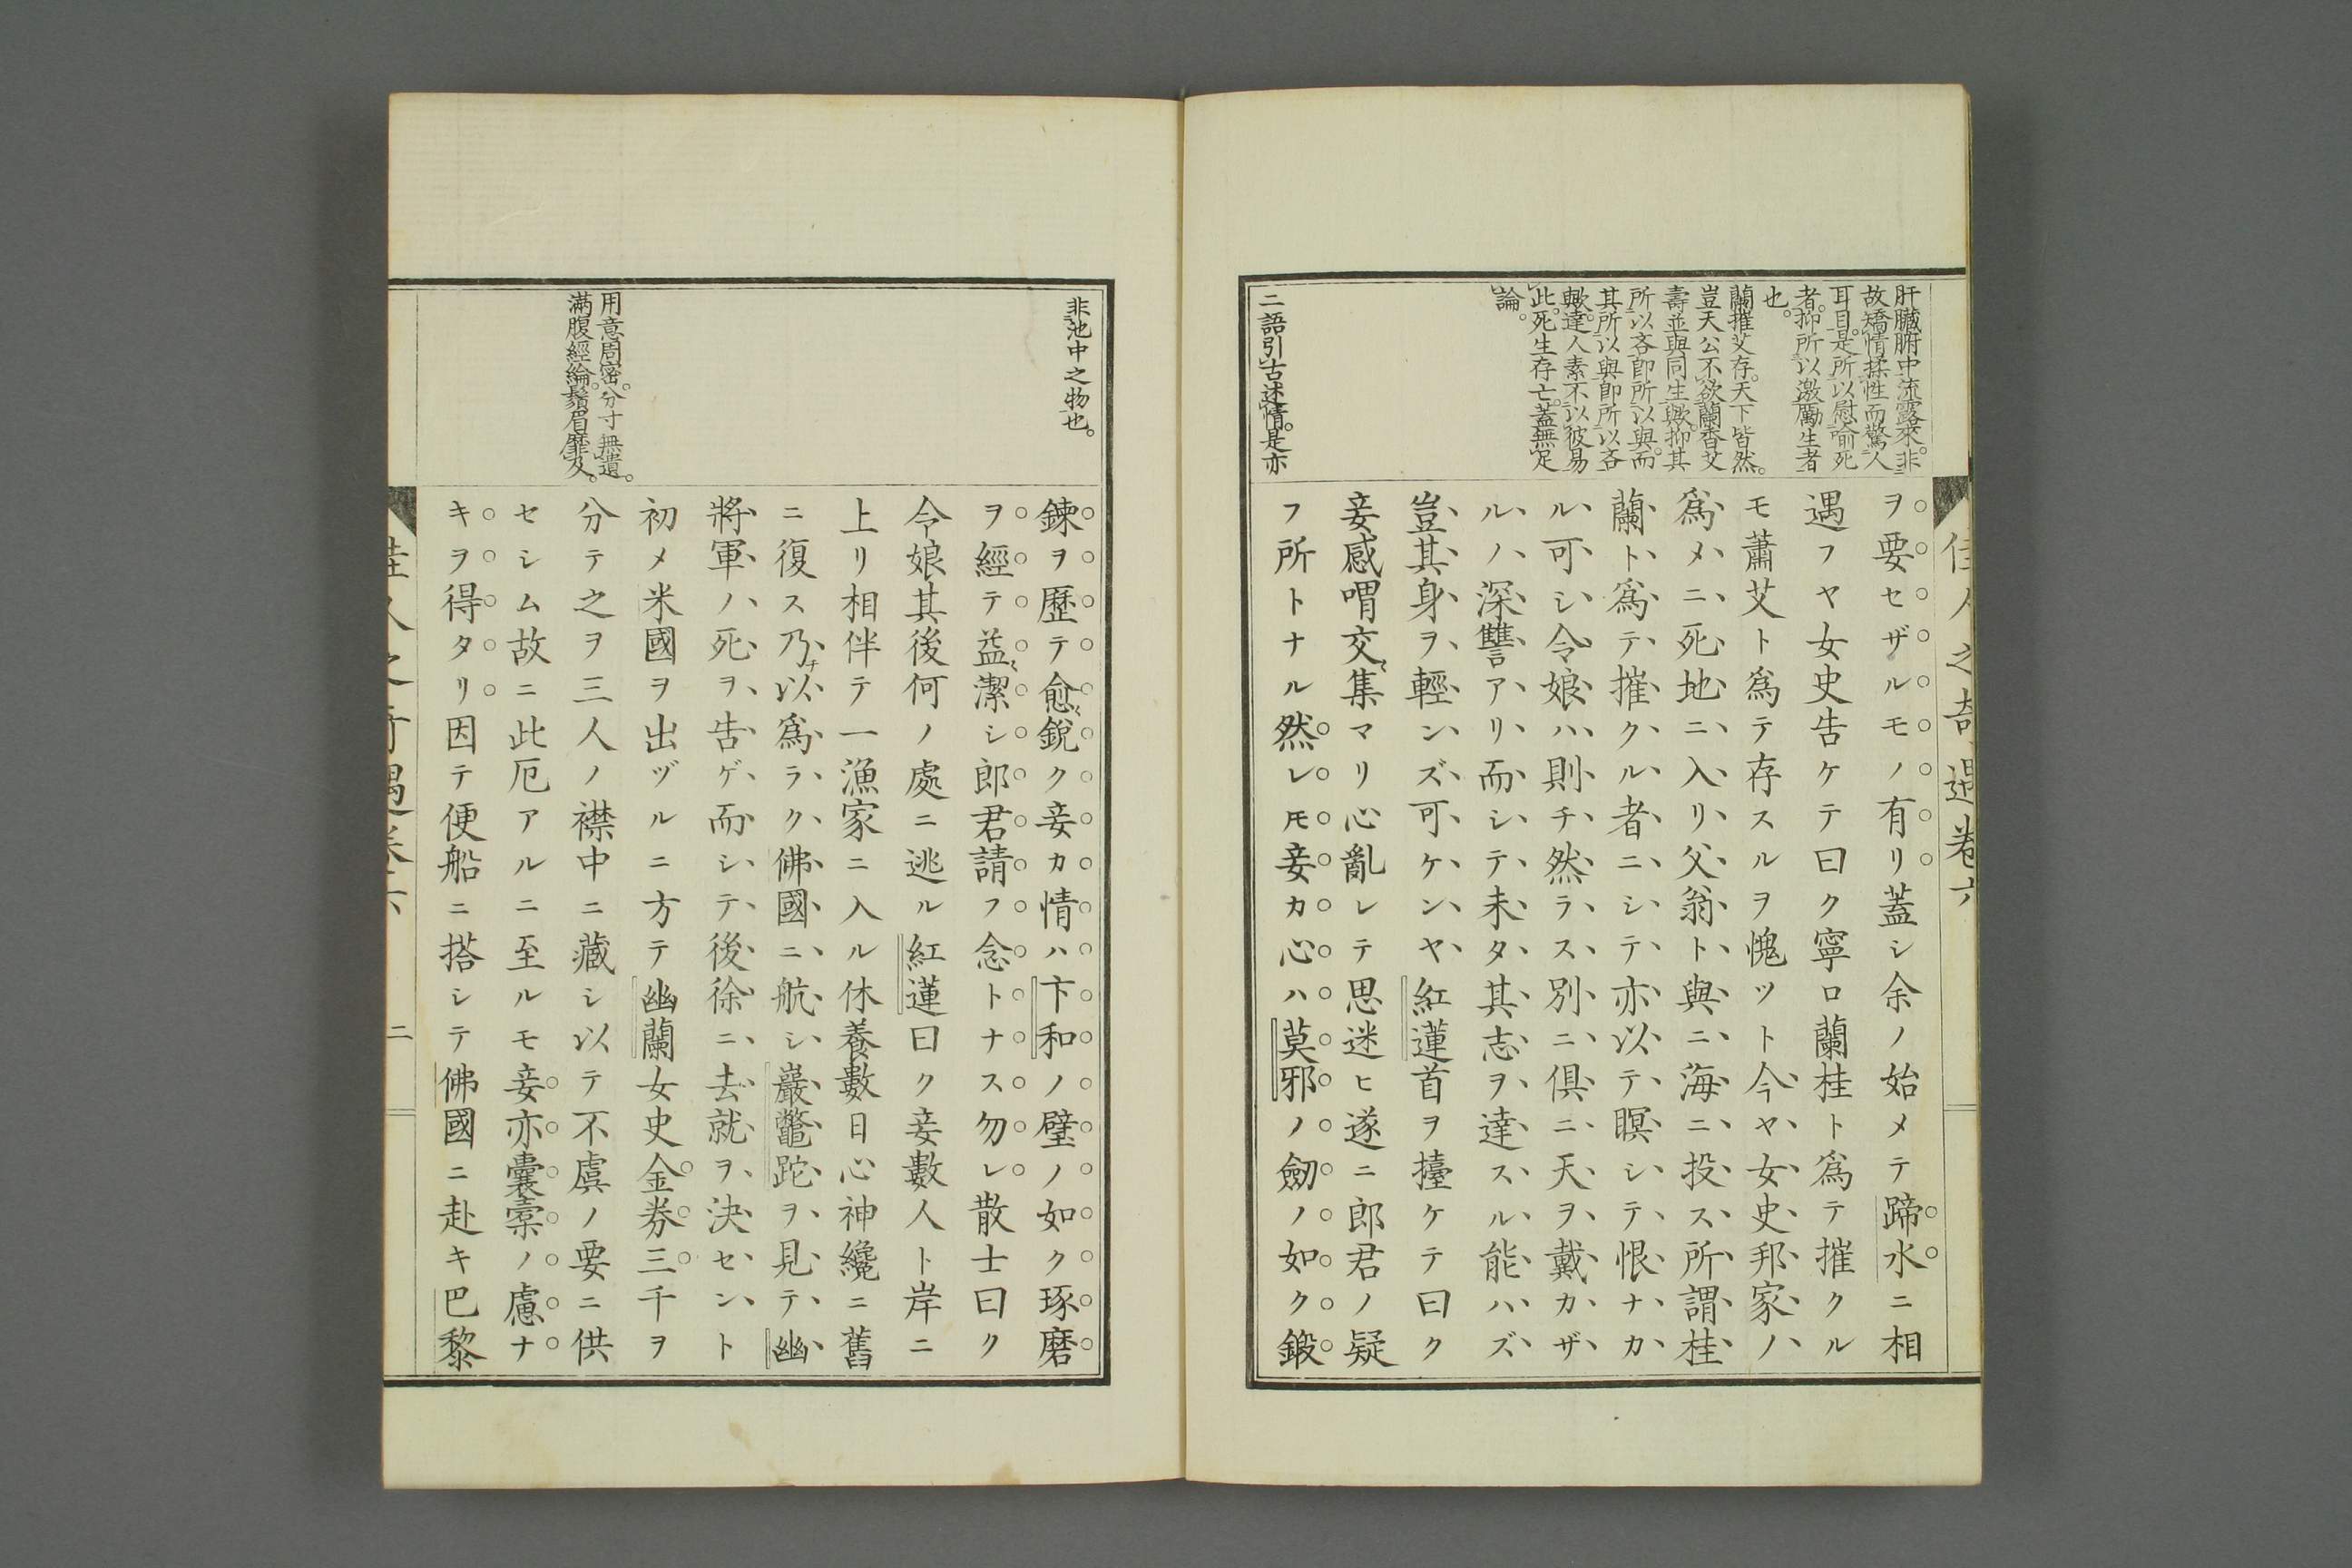 佳人之奇遇卷六
肝臟腑中流露來。非
故矯情揉性而驚人
耳目。是所以慰喻死
者。抑所以激勵生者
也。
蘭摧艾存。天下皆然。
豈天公不欲蘭香艾
壽並與同生歟。抑其
所以吝卽所以與。而
其所以與卽所以吝
歟。達人素不以彼易
此。死生存亡。蓋無足
論。
二語引古述情。是亦
ヲ要セザルモノ有リ蓋シ余ノ始メテ蹄水ニ相
遇フヤ女史告ケテ曰ク寧ロ蘭桂ト爲テ摧クル
モ蕭艾ト爲テ存スルヲ愧ツト今ヤ女史邦家ノ
爲メニ死地ニ入リ父翁ト與ニ海ニ投ス所謂桂
蘭ト爲テ摧クル者ニシテ亦以テ瞑シテ恨ナカ
ル可シ令娘ハ則チ然ラス別ニ俱ニ天ヲ戴カザ
ルノ深讐アリ而シテ未タ其志ヲ達スル能ハズ
豈其身ヲ輕ンズ可ケンヤ紅蓮首ヲ擡ケテ曰ク
妾感喟交〻集マリ心亂レテ思迷ヒ遂ニ郎君ノ疑
フ所トナル然レ𪜈妾カ心ハ莫邪ノ劒ノ如ク鍛
非池中之物也。
用意周密。分寸無遺。
滿腹經綸。鬚眉靡及。
鍊ヲ歷テ愈〻銳ク妾カ情ハ卞和ノ璧ノ如ク琢磨
ヲ經テ益〻潔シ郎君請フ念トナス勿レ散士曰ク
令娘其後何ノ處ニ逃ル紅蓮曰ク妾數人ト岸ニ
上リ相伴テ一漁家ニ入ル休養數日心神纔ニ舊
ニ復ス乃チ以爲ラク佛國ニ航シ巖鼈跎ヲ見テ幽
將軍ノ死ヲ吿ゲ而シテ後徐ニ去就ヲ決セント
初メ米國ヲ出ヅルニ方テ幽蘭女史金券三千ヲ
分テ之ヲ三人ノ襟中ニ藏シ以テ不虞ノ要ニ供
セシム故ニ此厄アルニ至ルモ妾亦囊槖ノ慮ナ
キヲ得タリ因テ便船ニ搭シテ佛國ニ赴キ巴黎
佳人之奇遇卷六
二